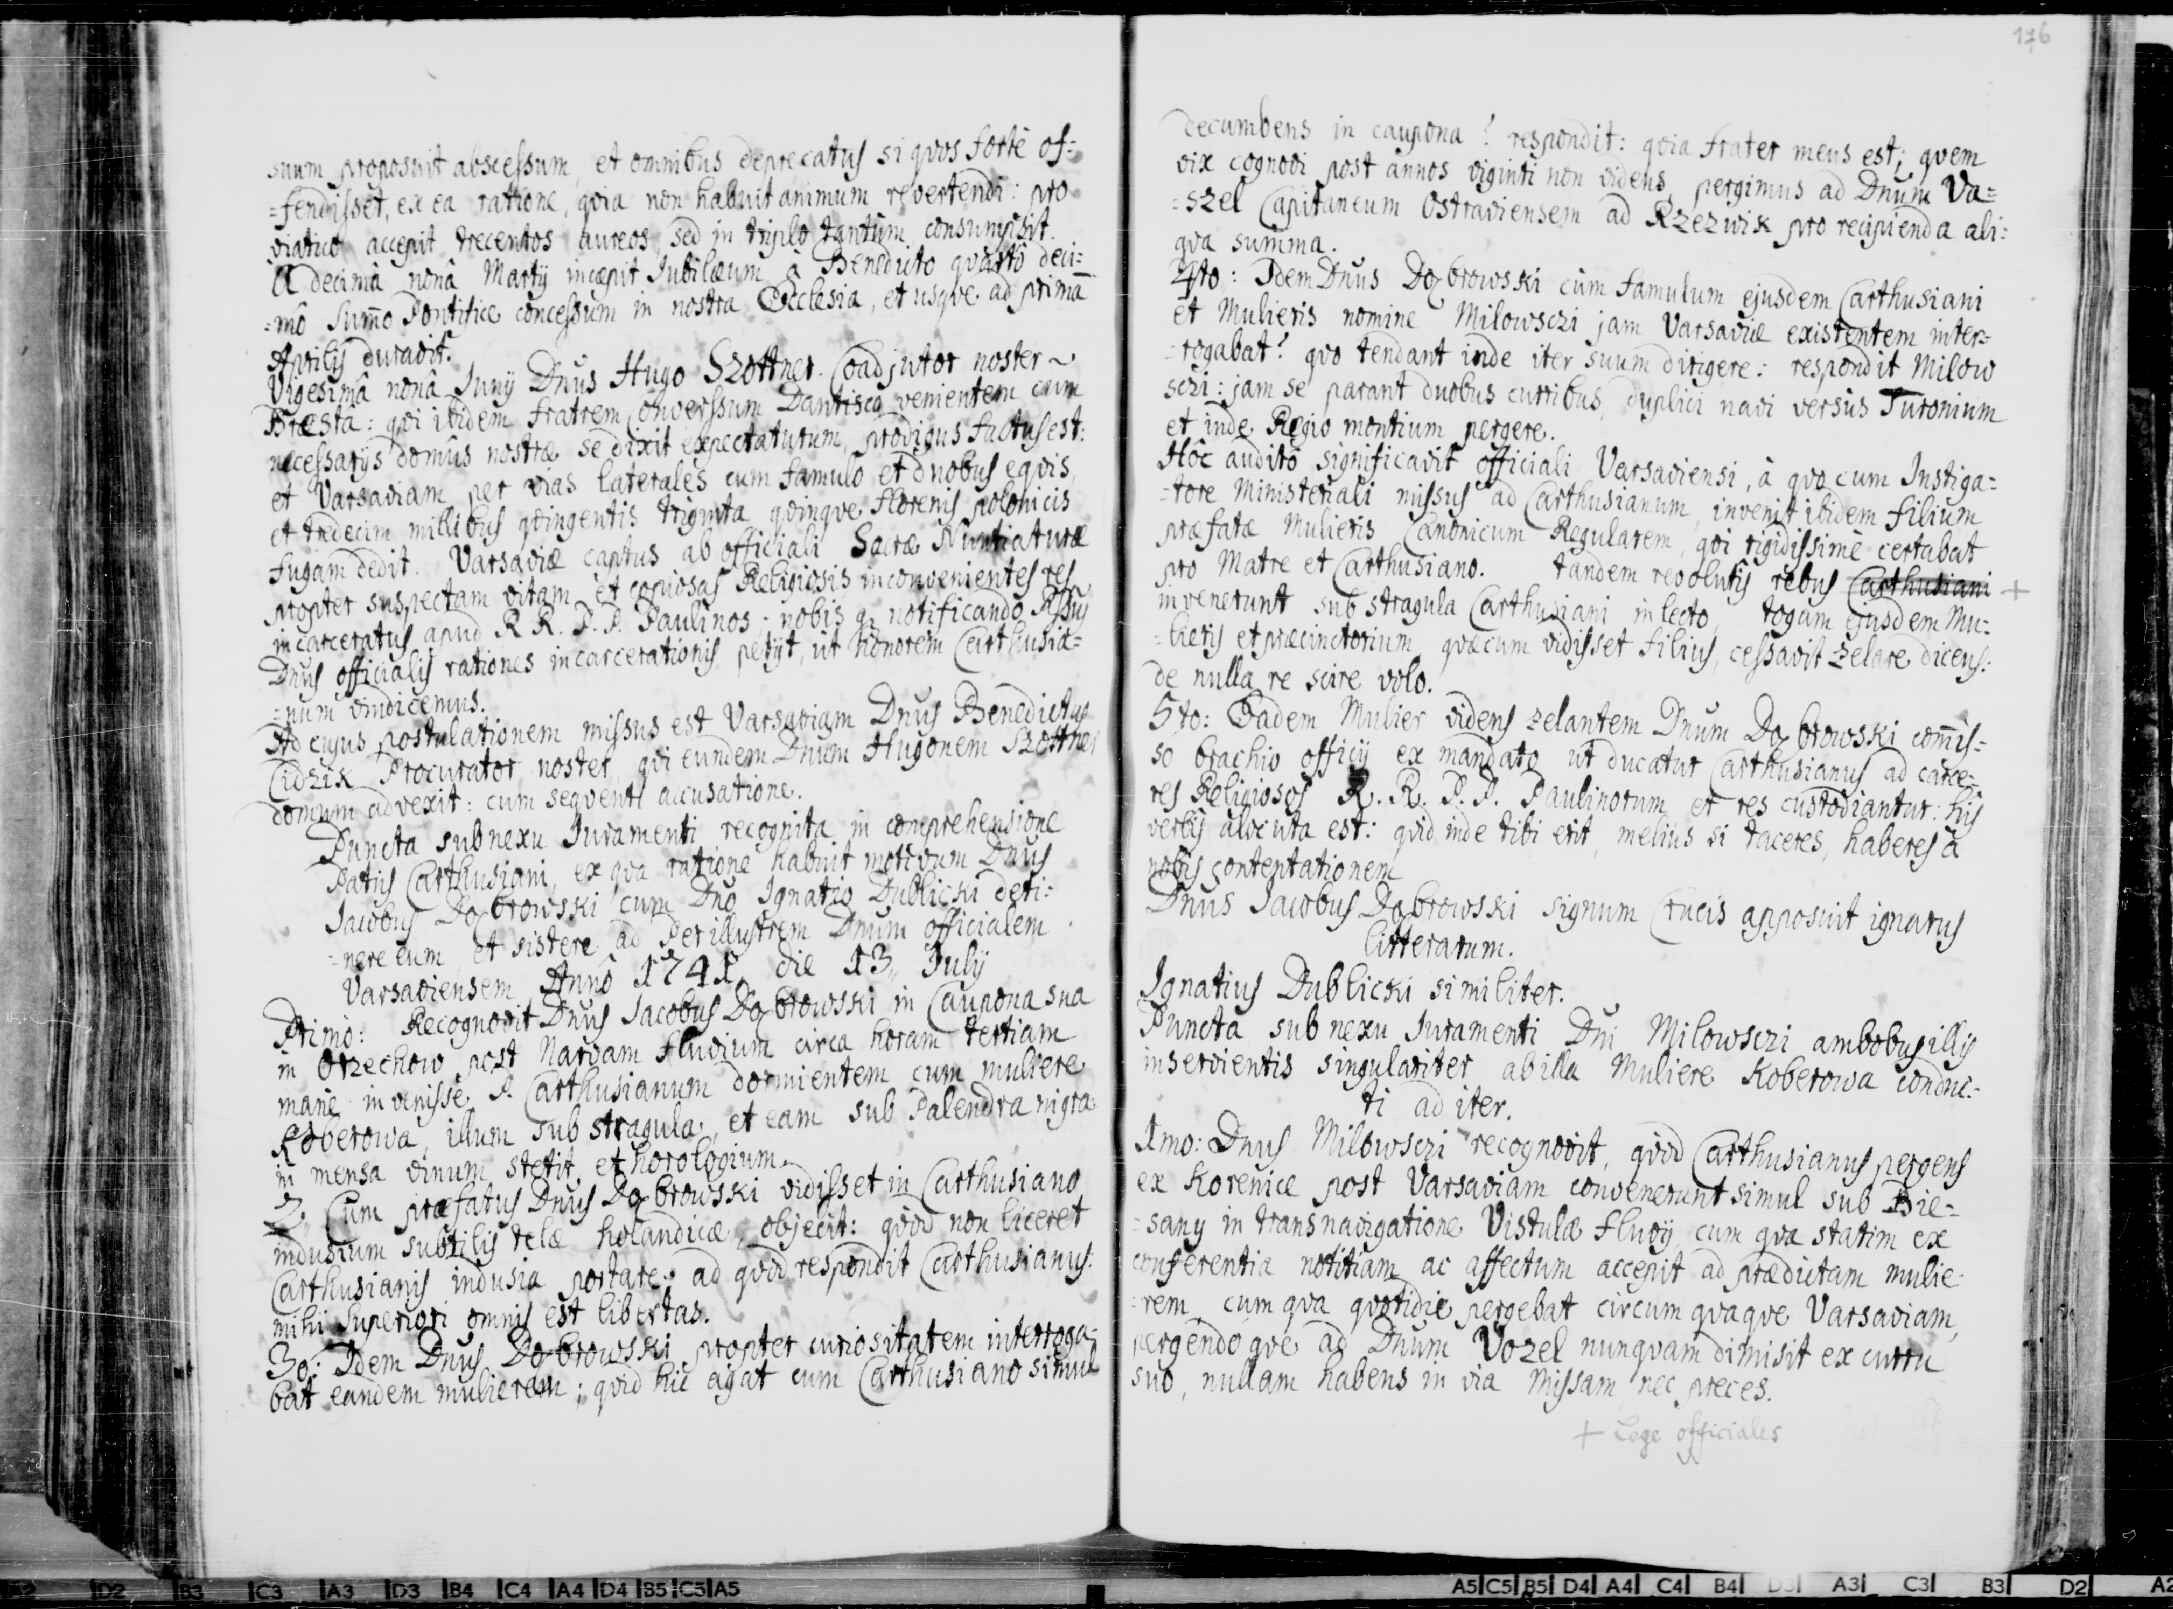 suum proposuit abscessum, et omnibus deprecatus si qvos forte of=
=fendisset, ex ea ratione, qvia non habuit animum revertendi: pro
viatico accepit trecentos aureos, sed in triplo tantum consumpsit.
A decimâ nonâ Martij incæpit Jubilæum â Benedicto qvartô deci=
=mô Sum̄o Pontifice concessum in nostra Ecclesia, et usqve ad primā
Aprilis duravit.
Vigesimâ nonâ Junij Dnus Hugo Szottner Coadjutor noster ~
Bræsta: qvi ibidem fratrem Conversum Dantisco venientem cum
necessarijs domûs nostræ se dixit expectaturum, prodigus factus est:
et Varsaviam per vias laterales cum famulo et duobus eqvis,
et tredecim millibus qvingentis triginta qvinqve florenis polonicis
fugam dedit. Varsaviæ captus ab officiali Sacræ Nuntiaturæ
propter suspectam vitam, et copiosas Religiosis inconvenientes res
incarceratus apud R R. P. P. Paulinos. nobis qz notificando Pssus
Dnus officialis rationes incarcerationis petijt, ut honorem Carthusia=
=num vindicemus.
Ad cujus postulationem missus est Varsaviam Dnus Benedictus
Cidzik Procurator noster, qvi eundem Dnum Hugonem Szottner
domum advexit: cum seqventi accusatione.
Puncta sub nexu Juramenti recognita in comprehensione
Patris Carthusiani, ex qva ratione habuit motivum Dnus
Jacobus Dąbrowski cum Dno Ignatio Dublicki deti=
=nere eum et sistere ad Perillustrem Dnum officialem
Varsaviensem Annô 1741 die 13 Julij
Primo: Recognovit Dnus Jacobus Dąbrowski in Caupona sua
in Orzechow post Narvam fluvium circa horam tertiam
mane invenisse P. Carthusianum dormientem cum muliere
Koberowa, illum sub stragula, et eam sub Palendra nigra
in mensa vinum stetit, et horologium.
2. Cum præfatus Dnus Dąbrowski vidisset in Carthusiano
indusium subtilis telæ holandicæ, objecit: qvod non liceret
Carthusianis indusia portare: ad qvod respondit Carthusianus:
mihi Superiori omnis est libertas.
3o: Idem Dnus Dąbrowski propter curiositatem interroga=
bat eandem mulierem; qvid hic agat cum Carthusiano simul
176
decumbens in caupona? respondit: qvia frater meus est; qvem
vix cognovi post annos viginti non videns, pergimus ad Dnum Va=
=szel Capitaneum Ostraviensem ad Rzezwik pro recipienda ali=
qva summa.
4to: Idem Dnus Dąbrowski cum famulum ejusdem Carthusiani
et Mulieris nomine Milowsczi jam Varsaviæ existentem inter=
=rogabat? qvo tendant inde iter suum dirigere: respondit Milow
sczi: jam se parant duobus curribus, duplici navi versus Turonium
et inde Regio montium pergere.
Hôc auditô significavit officiali Varsaviensi, â qvo cum Instiga=
=tore Ministeriali missus ad Carthusianum, invenit ibidem filium
præfatæ Mulieris Canonicum Regularem, qvi rigidissime certabat
pro Matre et Carthusiano. tandem revolutis rebus Carthusiani +
invenerunt sub stragula Carthusiani in lecto, togam ejusdem Mu=
=lieris et præcinctorium, qvæ cum vidisset filius, cessavit zelare dicens:
de nulla re scire volo.
5to: Eadem Mulier videns zelantem Dnum Dąbrowski com̄is=
so brachio officij ex mandato ut ducatur Carthusianus ad carce=
res Religiosos R. R. P. P. Paulinorum et res custodiantur: his
verbis alocuta est: qvid inde tibi erit, melius si taceres, haberes â
nobis contentationem
Dnus Jacobus Dąbrowski signum Crucis apposuit ignarus
litterarum.
Ignatius Dublicki similiter.
Puncta sub nexu Juramenti Dni Milowsczi ambobus illis
inservientis singulariter ab illa Muliere Koberowa conduc=
ti ad iter.
1mo: Dnus Milowsczi recognovit, qvod Carthusianus pergens
ex Korenice post Varsaviam convenerunt simul sub Bie=
=sany in transnavigatione Vistulæ fluvij cum qva statim ex
conferentia notitiam ac affectum accepit ad prædictam mulie
=rem, cum qva qvotidie pergebat circum qvaqve Varsaviam,
pergendo qve ad Dnum Vozel nunqvam dimisit ex curru
suo, nullam habens in via Missam nec preces.
+ Lege officiales